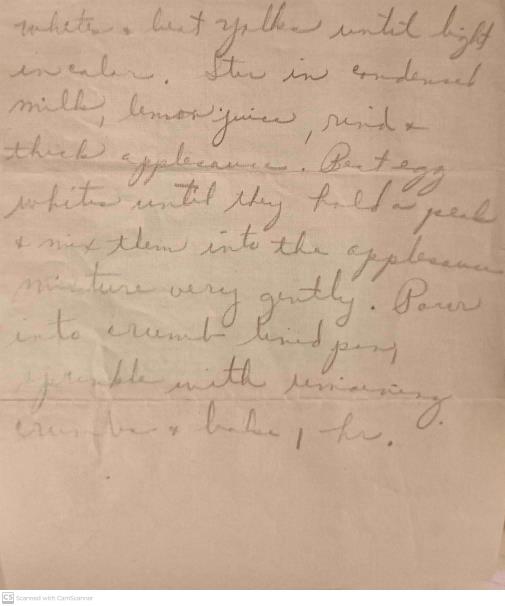 whites & beat yolks until light
in color. Stir in condensed
milk, lemon juice, rind &
thick applesauce. Beat egg
whites until they hold a peak
& mix them into the applesauce
mixture very gently. Pour
into crumb lined pan,
sprinkle with remaining
crumbs & bake 1 hr.
CS Scanned with CamScanner